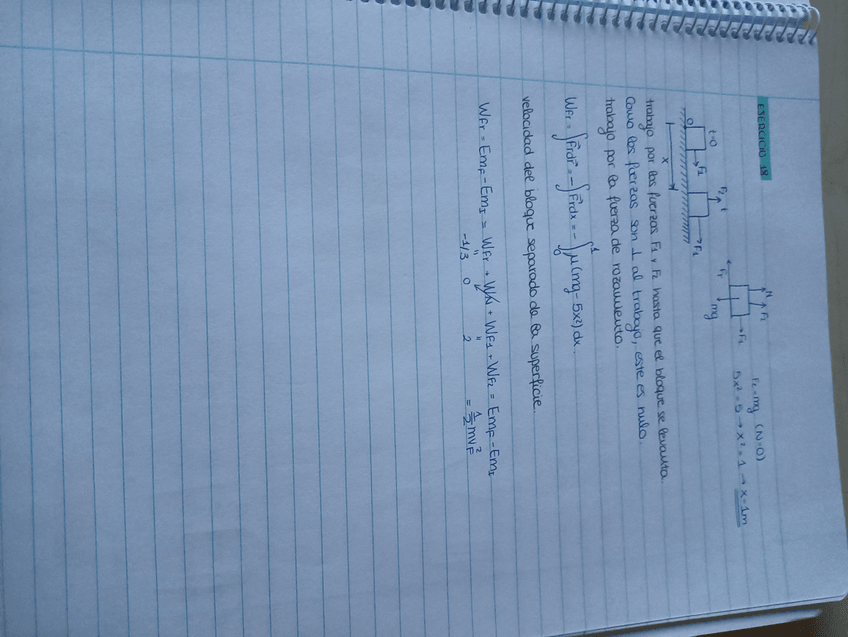 EJERCICIO 18
t=0
F1
F2
t
F1
O
x
N
F2
F1
Fr
mg
F2=mg (N=0)
5x²=5 → x²=1 → x=1m
trabajo por las fuerzas F1 y F2 hasta que el bloque se levanta.
Como las fuerzas son ⊥ al trabajo, este es nulo.
trabajo por la fuerza de rozamiento.
WFr = ∫F⃗rdr⃗ = -∫F⃗rdx = -∫₀¹ μ(mg-5x²)dx.
velocidad del bloque separado de la superficie.
WFr = EmF - EmI = WFr + WN + WF1 + WF2 = EmF - EmI
-1/3 0 2 = 1/2 mvF²